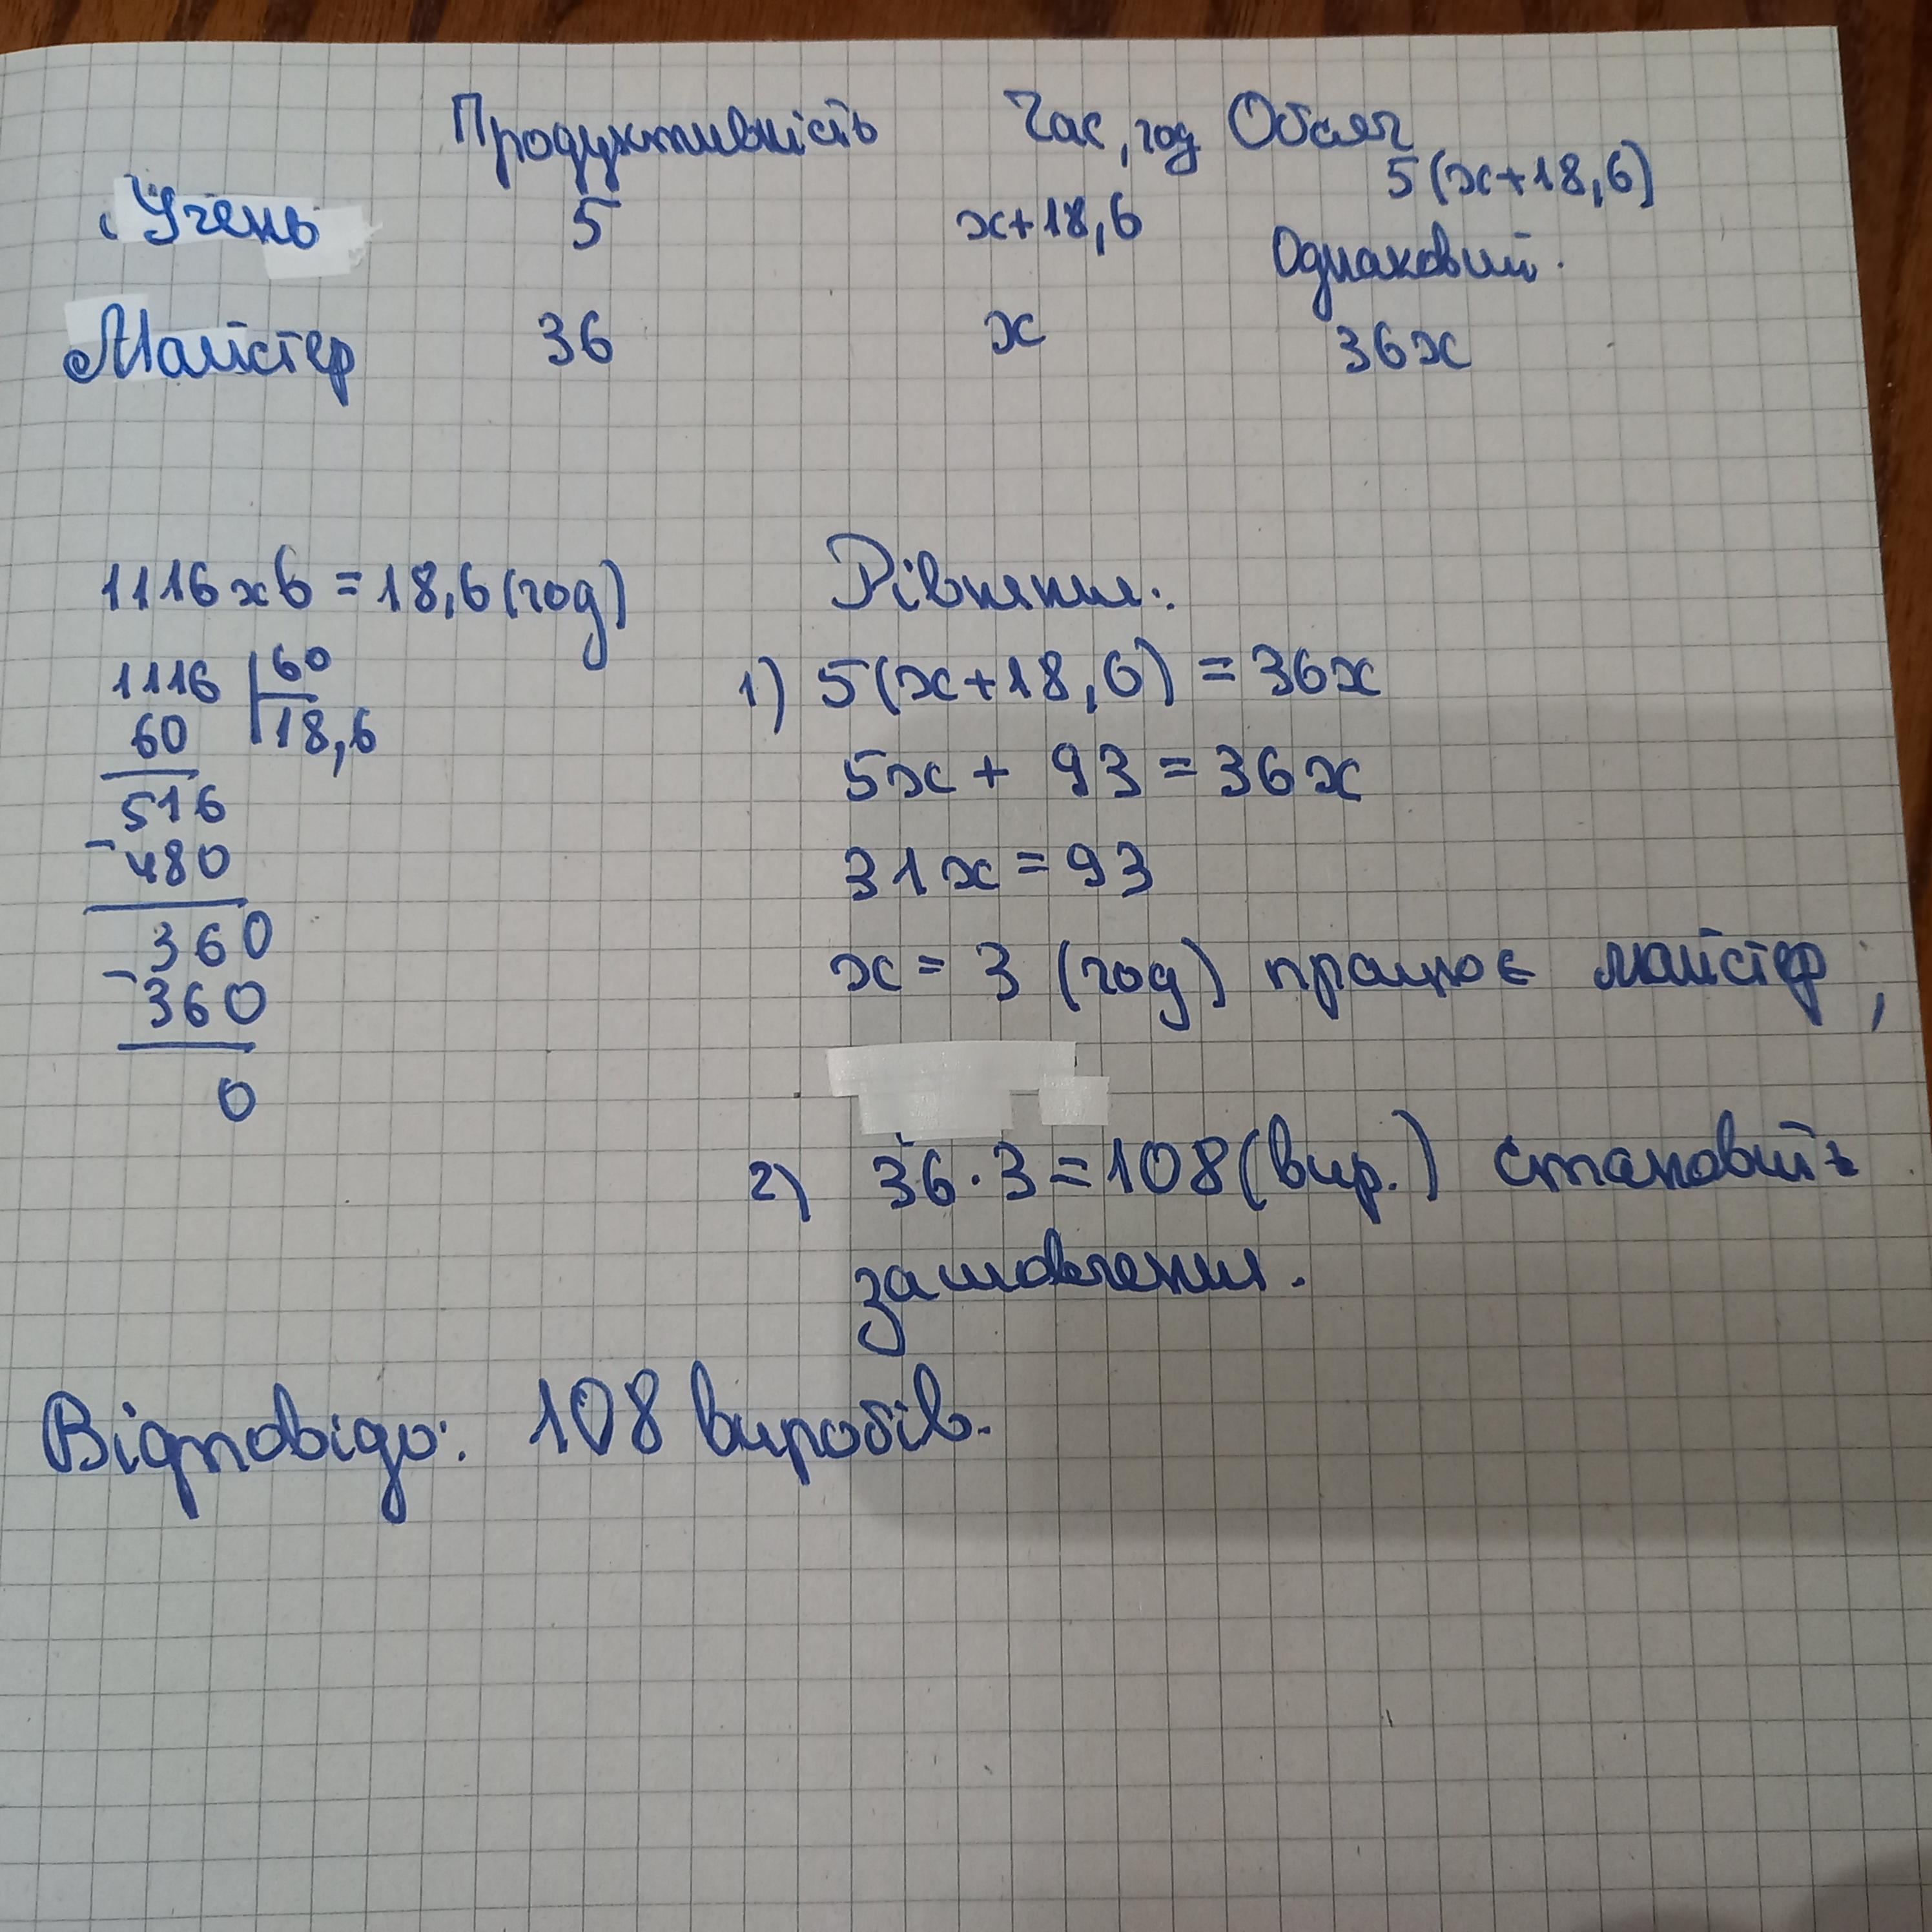 Продуктивність Час, год Обсяг
5(x+18,6)
Учень 5 x+18,6
Однаковий.
Майстер 36 x 36x
1116 хв = 18,6 (год)
1116 | 60
60 18,6
516
- 480
360
- 360
0
Рівняння:
1) 5(x+18,6) = 36x
5x + 93 = 36x
31x = 93
x = 3 (год) працює майстер,
2) 36 · 3 = 108 (вир.) становить
замовлення.
Відповідь: 108 виробів.